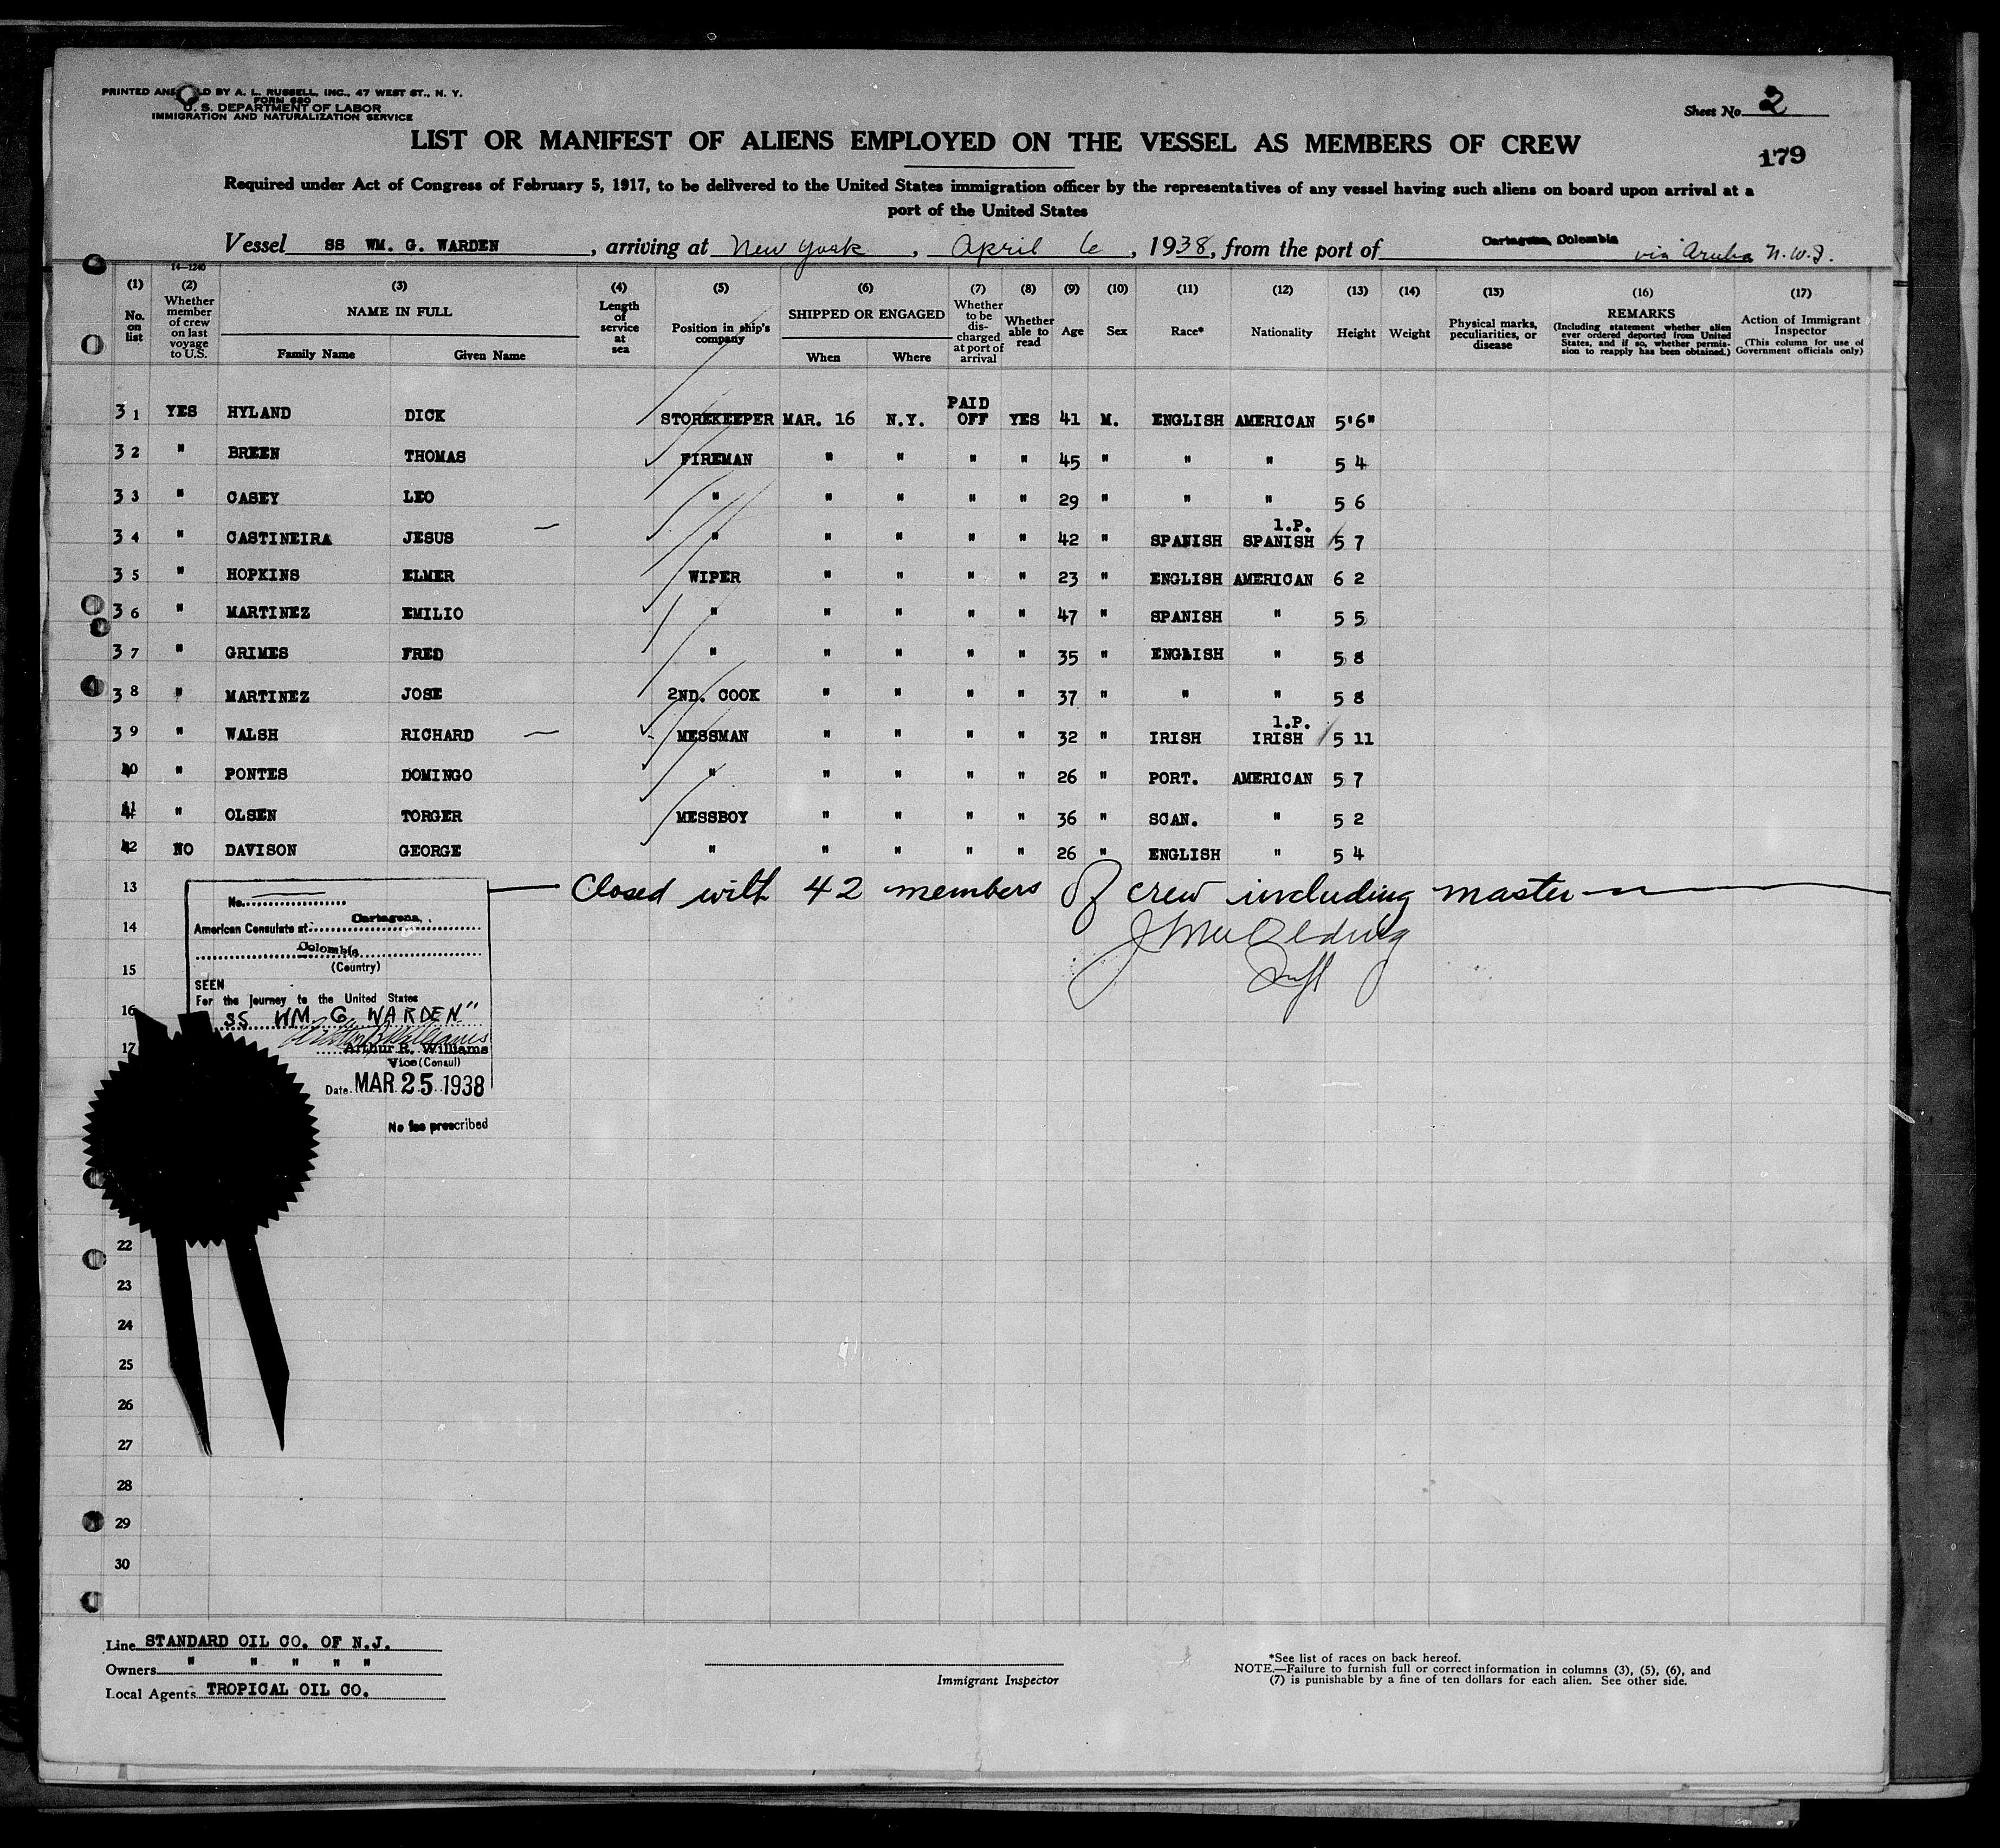 PRINTED AND SOLD BY A. L. RUSSELL, INC., 47 WEST ST., N. Y.
FORM 680
U. S. DEPARTMENT OF LABOR
IMMIGRATION AND NATURALIZATION SERVICE
Sheet No. 2
LIST OR MANIFEST OF ALIENS EMPLOYED ON THE VESSEL AS MEMBERS OF CREW
179
Required under Act of Congress of February 5, 1917, to be delivered to the United States immigration officer by the representatives of any vessel having such aliens on board upon arrival at a
port of the United States
Vessel SS WM. G. WARDEN, arriving at New York, April 6, 1938, from the port of Cartagena, Colombia via Aruba N.W.I.
14—1240
(1) No. on list
(2) Whether member of crew on last voyage to U.S.
(3) NAME IN FULL
Family Name Given Name
(4) Length of service at sea
(5) Position in ship's company
(6) SHIPPED OR ENGAGED
When Where
(7) Whether to be discharged at port of arrival
(8) Whether able to read
(9) Age
(10) Sex
(11) Race*
(12) Nationality
(13) Height
(14) Weight
(15) Physical marks, peculiarities, or disease
(16) REMARKS (Including statement whether alien ever ordered deported from United States, and if so, whether permission to reapply has been obtained.)
(17) Action of Immigrant Inspector (This column for use of Government officials only)
31 YES HYLAND DICK STOREKEEPER MAR. 16 N.Y. PAID OFF YES 41 M. ENGLISH AMERICAN 5'6"
32 " BREEN THOMAS FIREMAN " " " " 45 " " " 5 4
33 " CASEY LEO " " " " " 29 " " " 5 6
34 " CASTINEIRA JESUS " " " " " 42 " SPANISH 1.P. SPANISH 5 7
35 " HOPKINS ELMER WIPER " " " " 23 " ENGLISH AMERICAN 6 2
36 " MARTINEZ EMILIO " " " " " 47 " SPANISH " 5 5
37 " GRIMES FRED " " " " " 35 " ENGLISH " 5 8
38 " MARTINEZ JOSE 2ND. COOK " " " " 37 " " " 5 8
39 " WALSH RICHARD MESSMAN " " " " 32 " IRISH 1.P. IRISH 5 11
40 " PONTES DOMINGO " " " " " 26 " PORT. AMERICAN 5 7
41 " OLSEN TORGER MESSBOY " " " " 36 " SCAN. " 5 2
42 NO DAVISON GEORGE " " " " " 26 " ENGLISH " 5 4
13 Closed with 42 members of crew including master
14
15
16
17
No.
American Consulate at Cartagena,
Colombia
(Country)
SEEN
For the Journey to the United States
SS WM. G WARDEN"
Arthur R. Williams
Vice (Consul)
Date MAR 25 1938
No fee prescribed
22
23
24
25
26
27
28
29
30
Line STANDARD OIL CO. OF N.J.
Owners " " " " "
Local Agents TROPICAL OIL CO.
Immigrant Inspector
*See list of races on back hereof.
NOTE.—Failure to furnish full or correct information in columns (3), (5), (6), and
(7) is punishable by a fine of ten dollars for each alien. See other side.